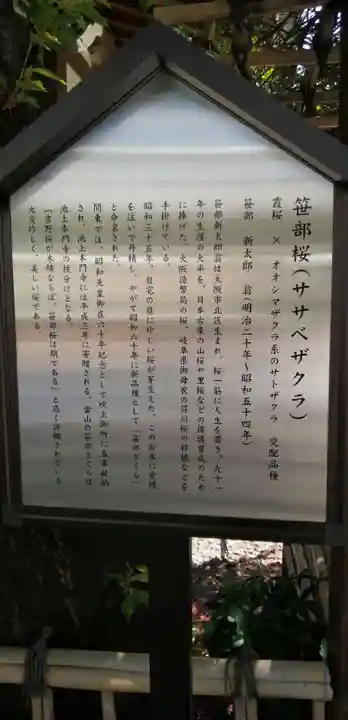 笹部桜(ササベザクラ)
霞桜 × オオシマザクラ系のサトザクラ 交配品種
笹部 新太郎 翁(明治二十年~昭和五十四年)
笹部新太郎翁は大阪市北区生まれ、桜一筋に人生を貫き、九十一
年の生涯の大半を、日本古来の山桜や里桜などの保護育成のため
に捧げた。大阪造幣局の桜、岐阜県御母衣の荘川桜の移植などを
手掛けている。
昭和三十五年、自宅の庭に珍しい桜が芽生えた。この若木に愛情
を注いで丹精し、やがて昭和六十年に新品種として「笹部ざくら」
と命名された。
関東では、昭和天皇御在六十年記念として吹上御所に五本献納
され、池上本門寺には平成三年に寄贈される。当山の笹部ざくらは
池上本門寺の枝分けとなる。
『吉野桜が木綿ならば、笹部桜は絹である』と高く評価されている
大変珍しく、美しい桜である。